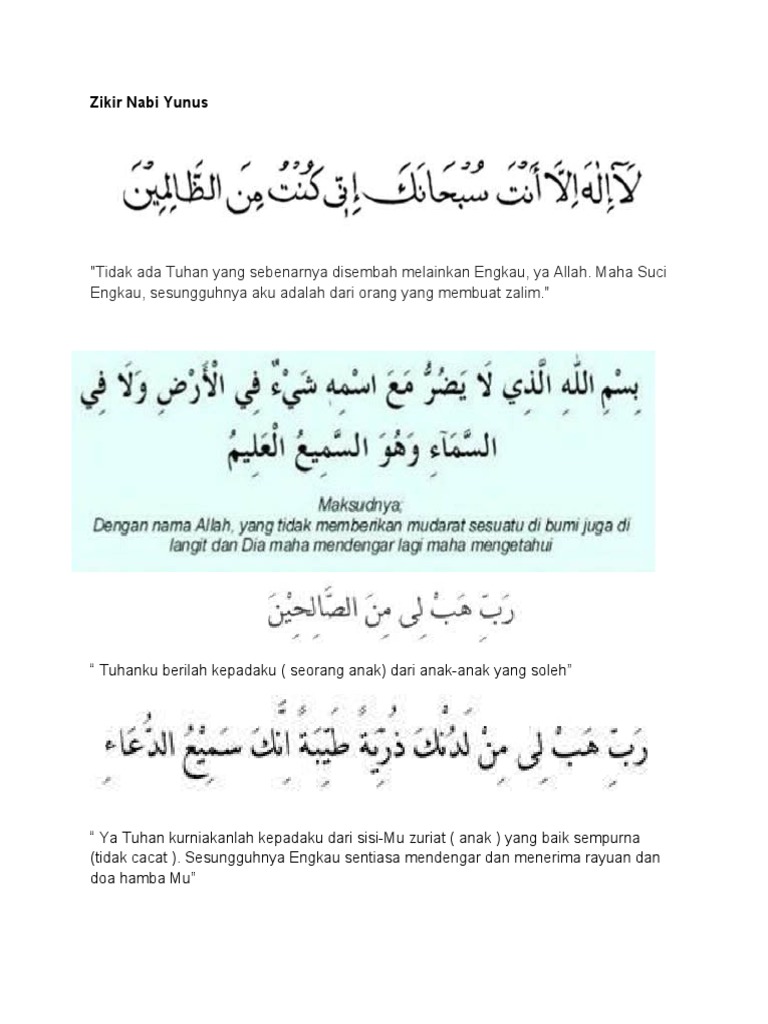 Zikir Nabi Yunus
لَآ إِلٰهَ إِلَّا أَنْتَ سُبْحَانَكَ إِنِّى كُنْتُ مِنَ الظَّالِمِيْنَ
"Tidak ada Tuhan yang sebenarnya disembah melainkan Engkau, ya Allah. Maha Suci
Engkau, sesungguhnya aku adalah dari orang yang membuat zalim."
بِسْمِ اللَّهِ الَّذِي لَا يَضُرُّ مَعَ اسْمِهِ شَيْءٌ فِي الْأَرْضِ وَلَا فِي
السَّمَآءِ وَهُوَ السَّمِيعُ الْعَلِيمُ
Maksudnya;
Dengan nama Allah, yang tidak memberikan mudarat sesuatu di bumi juga di
langit dan Dia maha mendengar lagi maha mengetahui
رَبِّ هَبْ لِى مِنَ الصَّالِحِيْنَ
“ Tuhanku berilah kepadaku ( seorang anak) dari anak-anak yang soleh”
رَبِّ هَبْ لِى مِنْ لَدُنْكَ ذُرِّيَةً طَيِّبَةً اِنَّكَ سَمِيْعُ الدُّعَاءِ
“ Ya Tuhan kurniakanlah kepadaku dari sisi-Mu zuriat ( anak ) yang baik sempurna
(tidak cacat ). Sesungguhnya Engkau sentiasa mendengar dan menerima rayuan dan
doa hamba Mu”